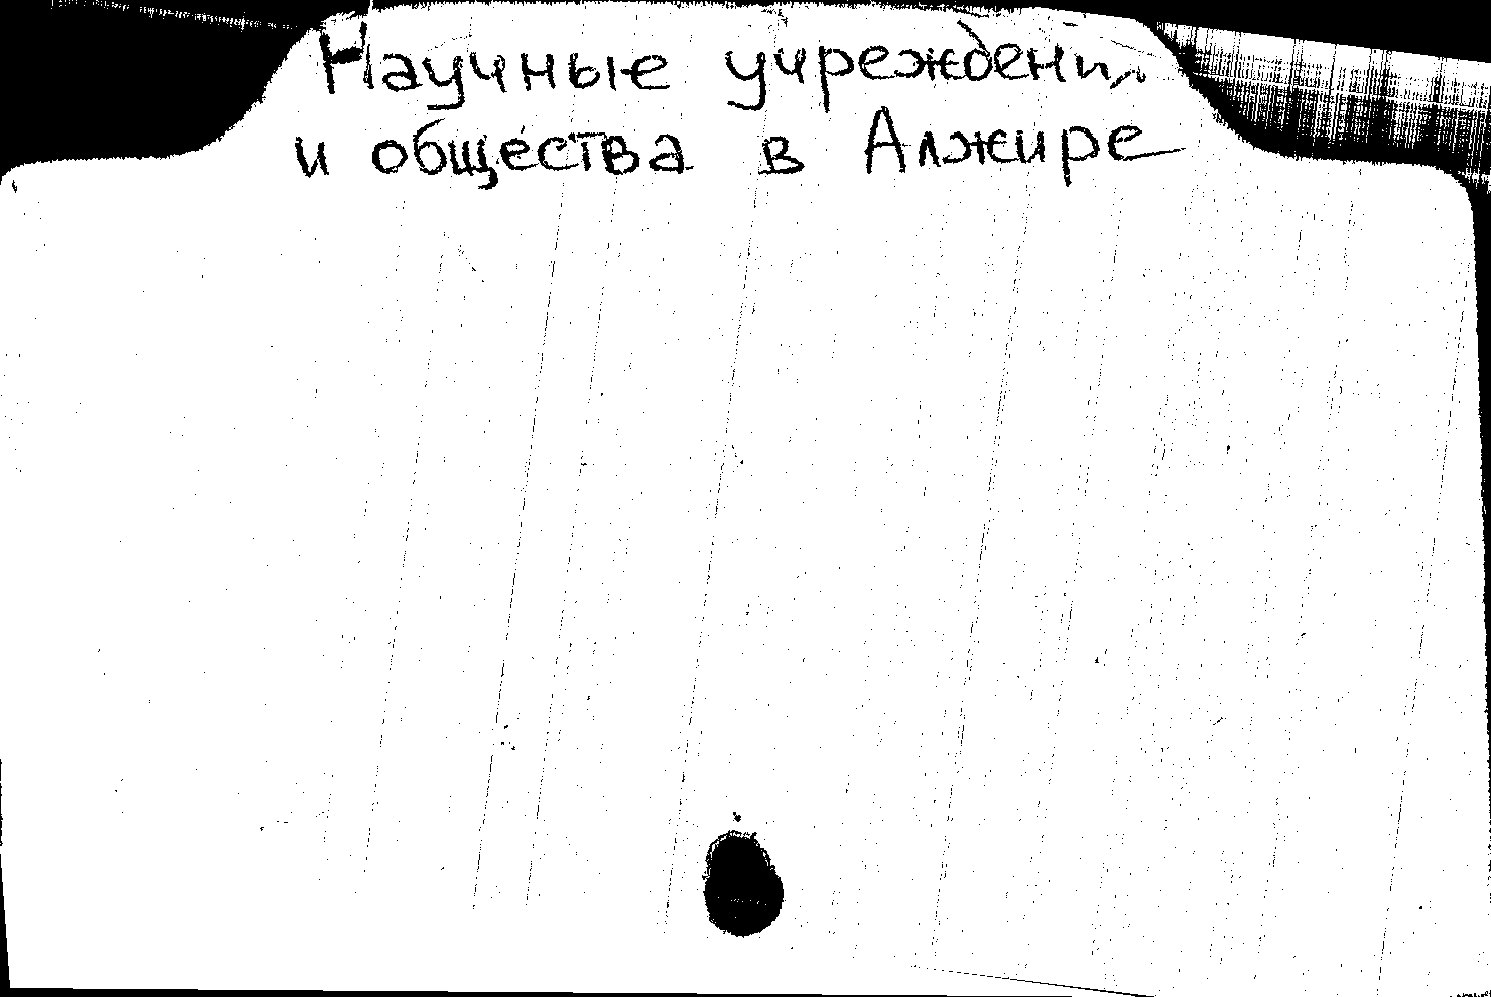 Научные учреждения
и общества в Алжире